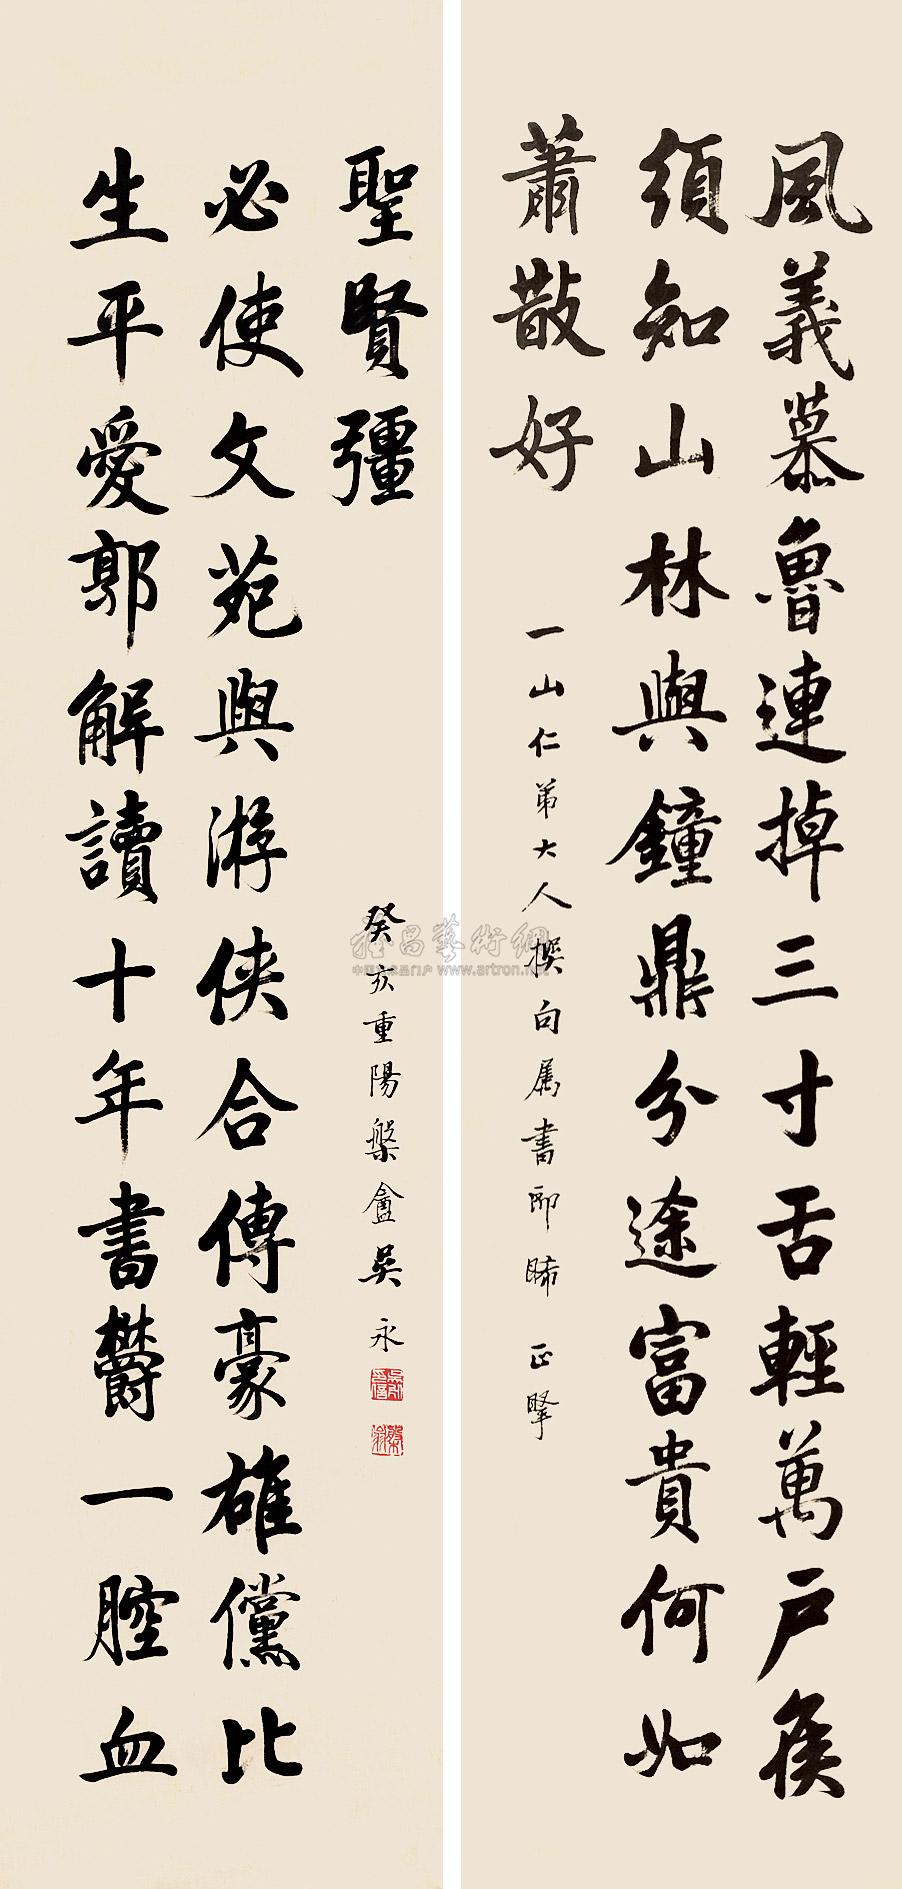 風義慕魯連掉三寸舌輕萬戶侯
須知山林與鐘鼎分途富貴何如
蕭散好
一山仁弟大人撰句属書即睎 正
生平愛郭解讀十年書欝一腔血
必使文苑與游俠合傳豪雄儻比
聖賢彊
癸亥重陽槃盦吳永
雅昌藝術網
www.artron.net